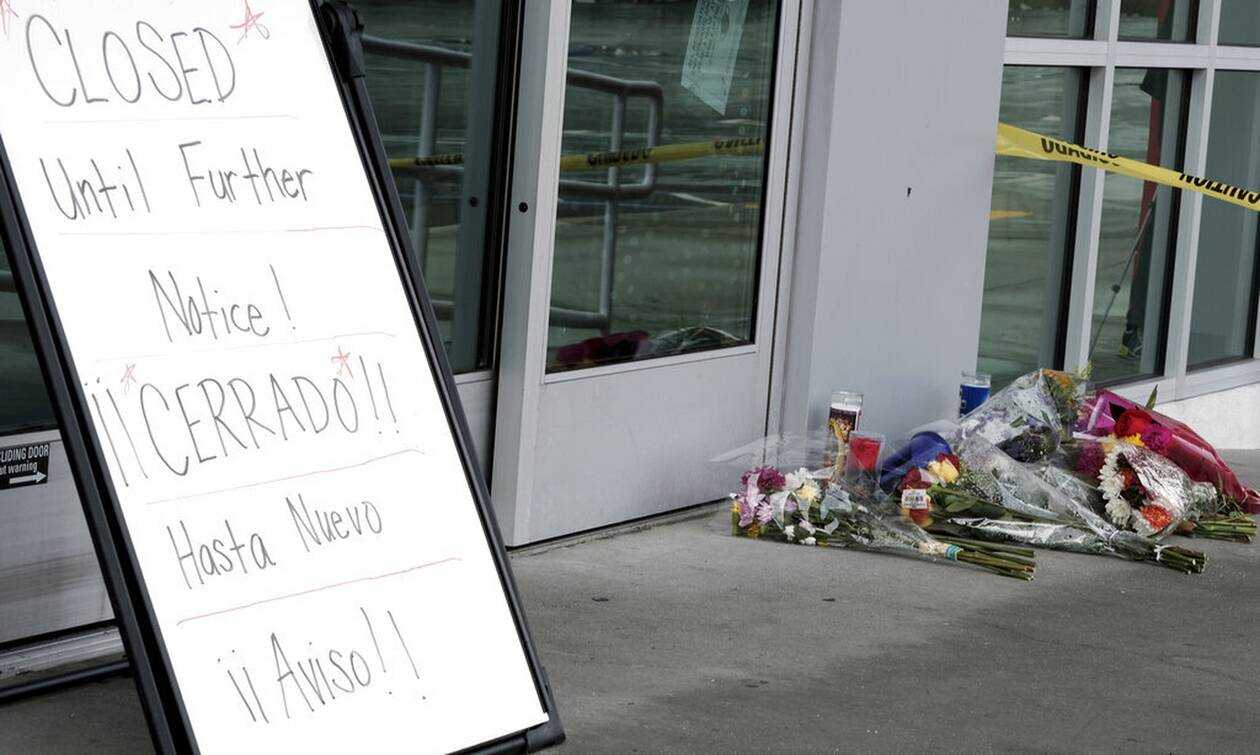 CLOSED
Until Further
Notice!
¡¡CERRADO!!
Hasta Nuevo
¡¡Aviso!!
SLIDING DOOR
warning
CUIDADO
CAUTION